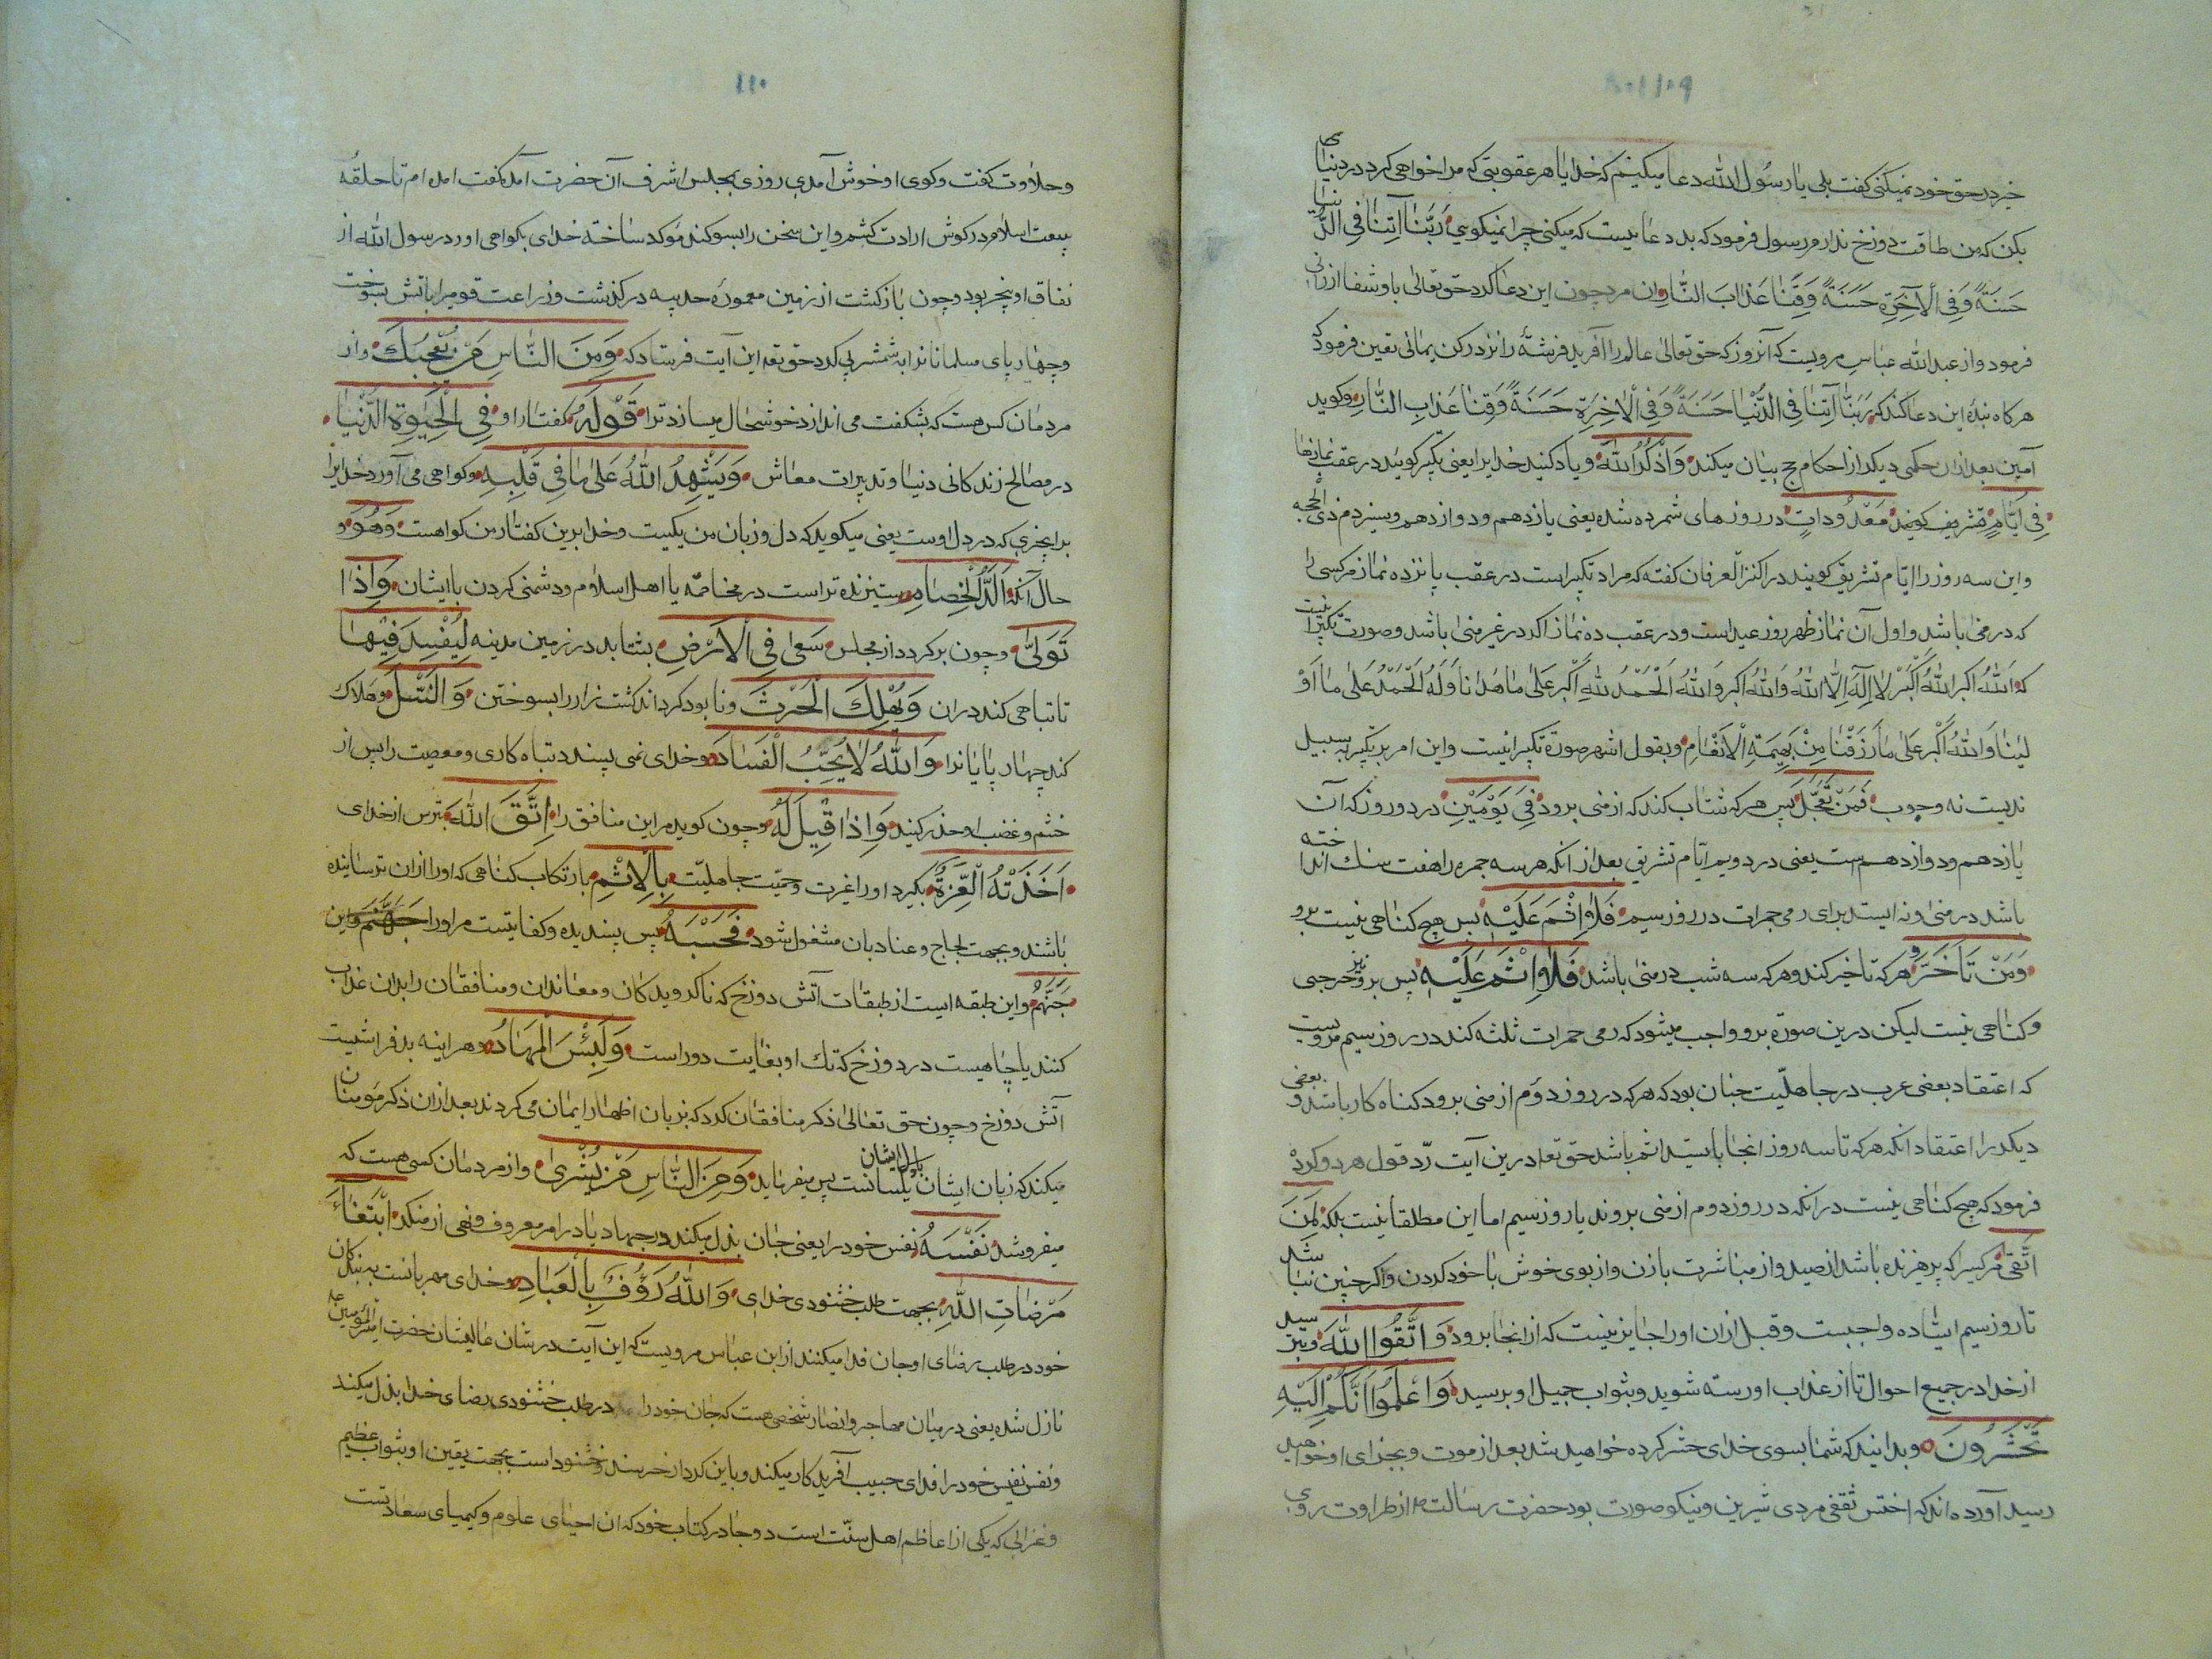 ۱۰۹
خیر در حق خود نمیکنی کفت بلی یا رسول الله دعا میکنیم که خدایا هر عقوبتی که مرا خواهی کرد در دنیا
بکن که من طاقت دوزخ ندارم رسول فرمود که بد دعاییست که میکنی چرا نمیکوی رَبَّنَا آتِنَا فِی الدُّنیَا
حَسَنَةً وَفِی الْآخِرَةِ حَسَنَةً وَقِنَا عَذَابَ النَّارِ وان مرد چون این دعا کرد حق تعالی باو شفا ارزانی
فرمود واز عبد الله عباس مرویست که آنروز که حق تعالی عالم را آفرید فرشتهٔ را نزد رکن یمانی تعین فرمود که
هرکاه بندهٔ این دعا کند که رَبَّنَا آتِنَا فِی الدُّنْیَا حَسَنَةً وَفِی الْاخِرَةِ حَسَنَةً وَقِنَا عَذَابِ النَّارِ وکوید
آمین بعد ازان حکمی دیکر از احکام حج بیان میکند وَاذْکُرُ اللهَ ویاد کنید خدایرا یعنی تکبیر کویید در عقب نمازها
فِی اَیَّامٍ تشریف کویند مَعْدُودَاتٍ در روزهای شمرده شده یعنی یازدهم ودوازدهم وسیزدهم ذی الحجه
واین سه روز را ایّام تشریق کویند در کنز العرفان کفته که مراد تکبیر است در عقب پانزده نماز مر کسی را
که در منی باشد واول آن نماز ظهر روز عید است ودر عقب ده نماز اکر در غیر منی باشد وصورت تکبیر اینست
که اَللهُ اَکبر اَللهُ اَکْبَرْ لَا اِلٰهَ اِلَّا اللهُ وَاللهُ اَکبر وَاللهُ اَلْحَمْدُ للهِ اَکْبر عَلیٰ مَا هَدَانَا وَلَهُ الْحَمْدُ عَلیٰ مَا اَوْ
لینَا وَاللهُ اَکْبر عَلیٰ مَا رَزَقْنَا مِنْ بَهِیمَةِ الْاَنْعَامِ وبقول اشهر صورة تکبیر اینست واین امر بر تکبیر به سبیل
ندبست نه وجوب فَمَنْ تَعَجَّلَ پس هرکه شتاب کند که از منی برود فِی یَوْمَیْنِ در دو روز که آن
یازدهم ودوازدهم است یعنی در دویم ایّام تشریق بعد از انکه هر سه جمره را هفت سنک انداخته
باشد در منی ونه ایستد برای رمی جمرات در روز سیم فَلَا اِثْمَ عَلَیْهِ پس هیچ کناهی نیست برو
وَمَنْ تَاَخَّرَ وهرکه تاخیر کند وهرکه سه شب در منی باشد فَلَا اِثْمَ عَلَیْهِ پس برو نیز حرجی
وکناهی نیست لیکن درین صورة برو واجب میشود که رمی جمرات ثلثه کند در روز سیم مرویست
که اعتقاد بعضی عرب در جاهلیّت چنان بود که هرکه در روز دوم از منی برود کناه کار باشد وبعضی
دیکر را اعتقاد انکه هرکه تا سه روز انجا بایستد اثم باشد حق تعا درین آیت ردّ قول هر دو کرد
فرمود که هیچ کناهی نیست در انکه در روز دوم از منی بروند یا روز سیم اما این مطلقا نیست بلکه لِمَنَ
اتَّقیٰ مر کسیرا که پرهیزنده باشد از صید واز مباشرت با زن واز بوی خوش با خود کردن واکر چنین نباشد
تا روز سیم ایستاده واجبست وقبل ازان او را جایز نیست که از انجا برود وَاتَّقُوا اللهَ وبترسید
از خدا در جمیع احوال تا از عذاب او رسته شوید وبثواب جمیل او برسید وَاعْلَمُوا اَنَّکُمْ اِلَیْهِ
تُحْشَرُونَ وبدانید که شما بسوی خدای حشر کرده خواهید شد بعد از موت وبجزای او خواهید
رسید آورده اند که اخنس ثقفی مردی شیرین ونیکو صورت بود حضرت رسالت از طراوت روی
۱۱۰
وحلاوت کفت وکوی او خوش آمدی روزی بمجلس اشرف آن حضرت آمد کفت امده ام تا حلقهٔ
بیعت اسلام در کوش ارادت کشم واین سخن را بسوکند مؤکد ساخته خدای بکواهی اورد رسول الله از
نفاق او بیخبر بود وچون بازکشت از زمین معمورهٔ مدینه درکذشت وزراعت قومیرا باتش بسوخت
وچهارپای مسلمانانرا بشمشیر پی کرد حق تعه این آیت فرستاد که وَمِنَ النَّاسِ مَنْ یُعْجِبُكَ واز
مردمان کس هست که بشکفت می اندازد خوشحال میسازد ترا قَوْلُهُ کفتار او فِی الْحَیٰوةِ الدُّنْیَا
در مصالح زندکانی دنیا وتدبیرات معاش وَیُشْهِدُ اللهَ عَلیٰ مَا فِی قَلْبِهِ وکواهی می آورد خدایرا
برانچیزی که در دل اوست یعنی میکوید که دل وزبان من یکیست وخدا برین کفتار من کواهست وَهُوَ و
حال آنکه اَلَدُّ الْخِصَامِ ستیزنده تر است در مخاصمه با اهل اسلام ودشمنی کردن با ایشان وَاِذَا
تَوَلّیٰ وچون برکردد از مجلس سَعیٰ فِی الْاَرْضِ بشتابد در زمین مدینه لِیُفْسِدَ فِیْهَا
تا تباهی کند دران وَیُهْلِكَ الْحَرْثَ ونابود کرداند کشت زار را بسوختن وَالنَّسْلَ وهلاک
کند چهارپایانرا وَاللهُ لَایُحِبُّ الْفَسَادَ وخدای نمی پسندد تباه کاری ومعصیت را پس از
خشم وغضب او حذر کنید وَاِذَا قِیْلَ لَهُ وچون کوید مر این منافق را اِتَّقِ اللهَ بترس از خدای
اَخَذَتْهُ الْعِزَّةُ بکیرد او را غیرت وحمیّت جاهلیّت بِالْاِثْمِ بارتکاب کناهی که او را ازان ترسانیده
باشند وبجهت لجاج وعناد بان مشغول شود فَحَسْبُهُ پس بسندیده وکفایتست مر او را
جَهَنَّمُ واین طبقه ایست از طبقات آتش دوزخ که ناکرویدکان ومعاندان ومنافقان را بدان عذاب
کنند یا چاهیست در دوزخ که تك او بغایت دور است وَلَبِئْسَ الْمِهَادُ وهر اینه بد فراشیست
آتش دوزخ وچون حق تعالی ذکر منافقان کرد که بزبان اظهار ایمان می کردند بعد ازان ذکر مؤمنان
میکند که زبان ایشان با دل ایشان یکسانست پس میفرماید وَمِنَ النَّاسِ مَنْ یَشْرِیٰ واز مردمان کسی هست که
میفروشد نَفْسَهُ نفس خود را یعنی جان بذل میکند در جهاد یا در امر معروف ونهی از منکر ابْتِغَآءَ
مَرْضَاتِ اللهِ بجهت طلب خشنودی خدای وَاللهُ رَؤُفٌ بِالْعِبَادِ وخدای مهربانست به بندکان
خود در طلب رضای او جان فدا میکنند از ابن عباس مرویست که این آیت در شان عالیشان حضرت امیر المؤمنین
نازل شده یعنی در میان مهاجر وانصار شخصی هست که جان خود را در طلب خشنودی رضای خدا بذل میکند
ونفس نفیس خود را فدای حبیب آفریدکار میکند وباین کردار خرسند وخشنود است بجهت یقین او بثواب عظیم
وغزالی که یکی از اعاظم اهل سنّت است دو جا در کتاب خود که ان احیای علوم وکیمیای سعادتست